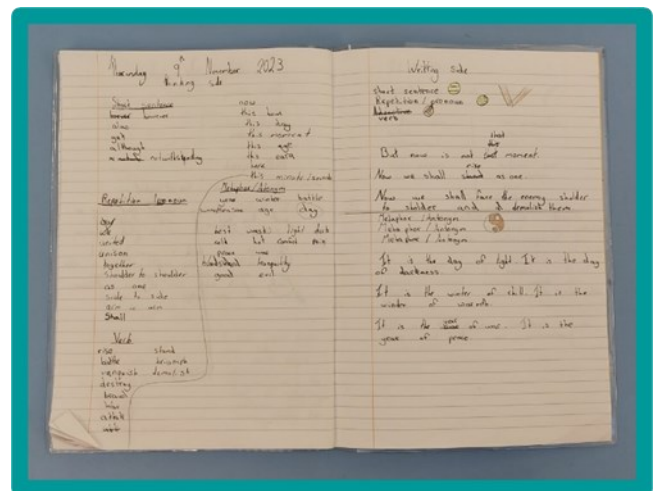 Thursday 9th November 2023
Thinking side
Short sentence
however
also
yet
although
notwithstanding
now
this hour
this day
this moment
this age
this
here
this minute/seconds
Repetition / pronoun
we
united
unison
together
shoulder to shoulder
as one
side to side
arm in arm
Shall
Metaphor / Antonym
year winter battle
age day
best worst light dark
hot
peace war
tranquility
good evil
Verb
rise stand
battle triumph
vanquish demolish
destroy
attack
Writing side
short sentence
Repetition / pronoun
verb
that
But now is not moment.
rise
Now we shall stand as one.
Now we shall face the enemy sholder
to sholder and demolish them
Metaphor / Antonym
Metaphor / Antonym
Metaphor / Antonym
It is the day of light It is the day
of darkness
It is the winter of chill. It is the
winter of warmth.
year
It is the of war. It is the
year of peace.